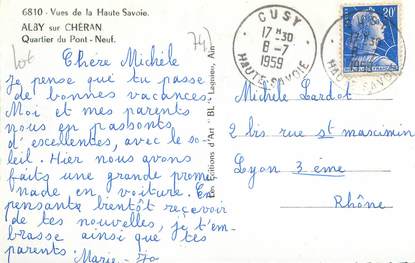 6810 - Vues de la Haute Savoie.
ALBY sur CHÉRAN
Quartier du Pont-Neuf.
74
lot
Chère Michèle
Je pense que tu passe
de bonnes vacances
Moi et mes parents
nous en passonts
d'excellentes, avec le so-
leil. Hier nous avons
faits une grande prome
nade en voiture. En
pensante bientôt recevoir
de tes nouvelles, je t'em-
brasse ainsi que tes
parents. Marie-
Les Editions d'Art - BL - Laguier, Ain
CUSY
17 H 30
8-7
1959
HAUTE-SAVOIE
20F
1959
HAUTE-SAVOIE
Michèle Lardot
2 bis rue st maximin
Lyon 3 ème
Rhône